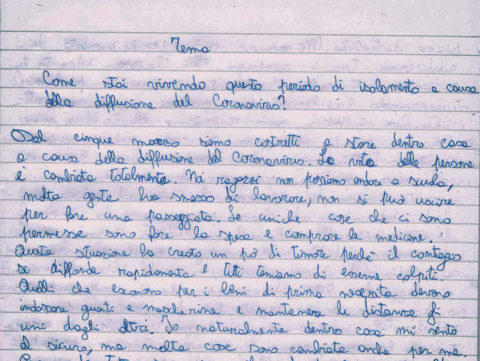 Tema
Come stai vivendo questo periodo di isolamento a causa
della diffusione del Coronavirus?
Dal cinque marzo siamo costretti a stare dentro casa
a causa della diffusione del Coronavirus. La vita delle persone
è cambiata totalmente. Noi ragazzi non possiamo andare a scuola,
molta gente ha smesso di lavorare, non si può uscire
per fare una passeggiata. Le uniche cose che ci sono
permesse sono fare la spesa e comprare le medicine.
Questa situazione ha creato un po' di timore perché il contagio
si diffonde rapidamente e tutti temiamo di esserne colpiti.
Quelli che escono per i beni di prima necessità devono
indossare guanti e mascherina e mantenere le distanze gli
uni dagli altri. Io naturalmente dentro casa mi sento
al sicuro, ma molte cose sono cambiate anche per me.